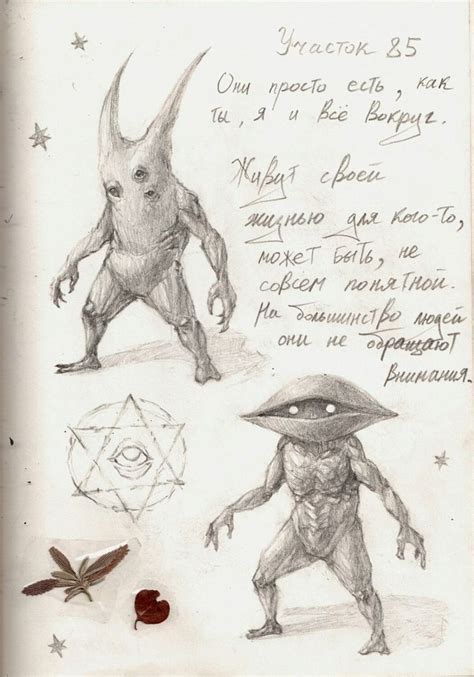 Участок 85
Они просто есть, как
ты, я и всё вокруг.
Живут своей
жизнью для кого-то,
может быть, не
совсем понятной.
На большинство людей
они не обращают
внимания.